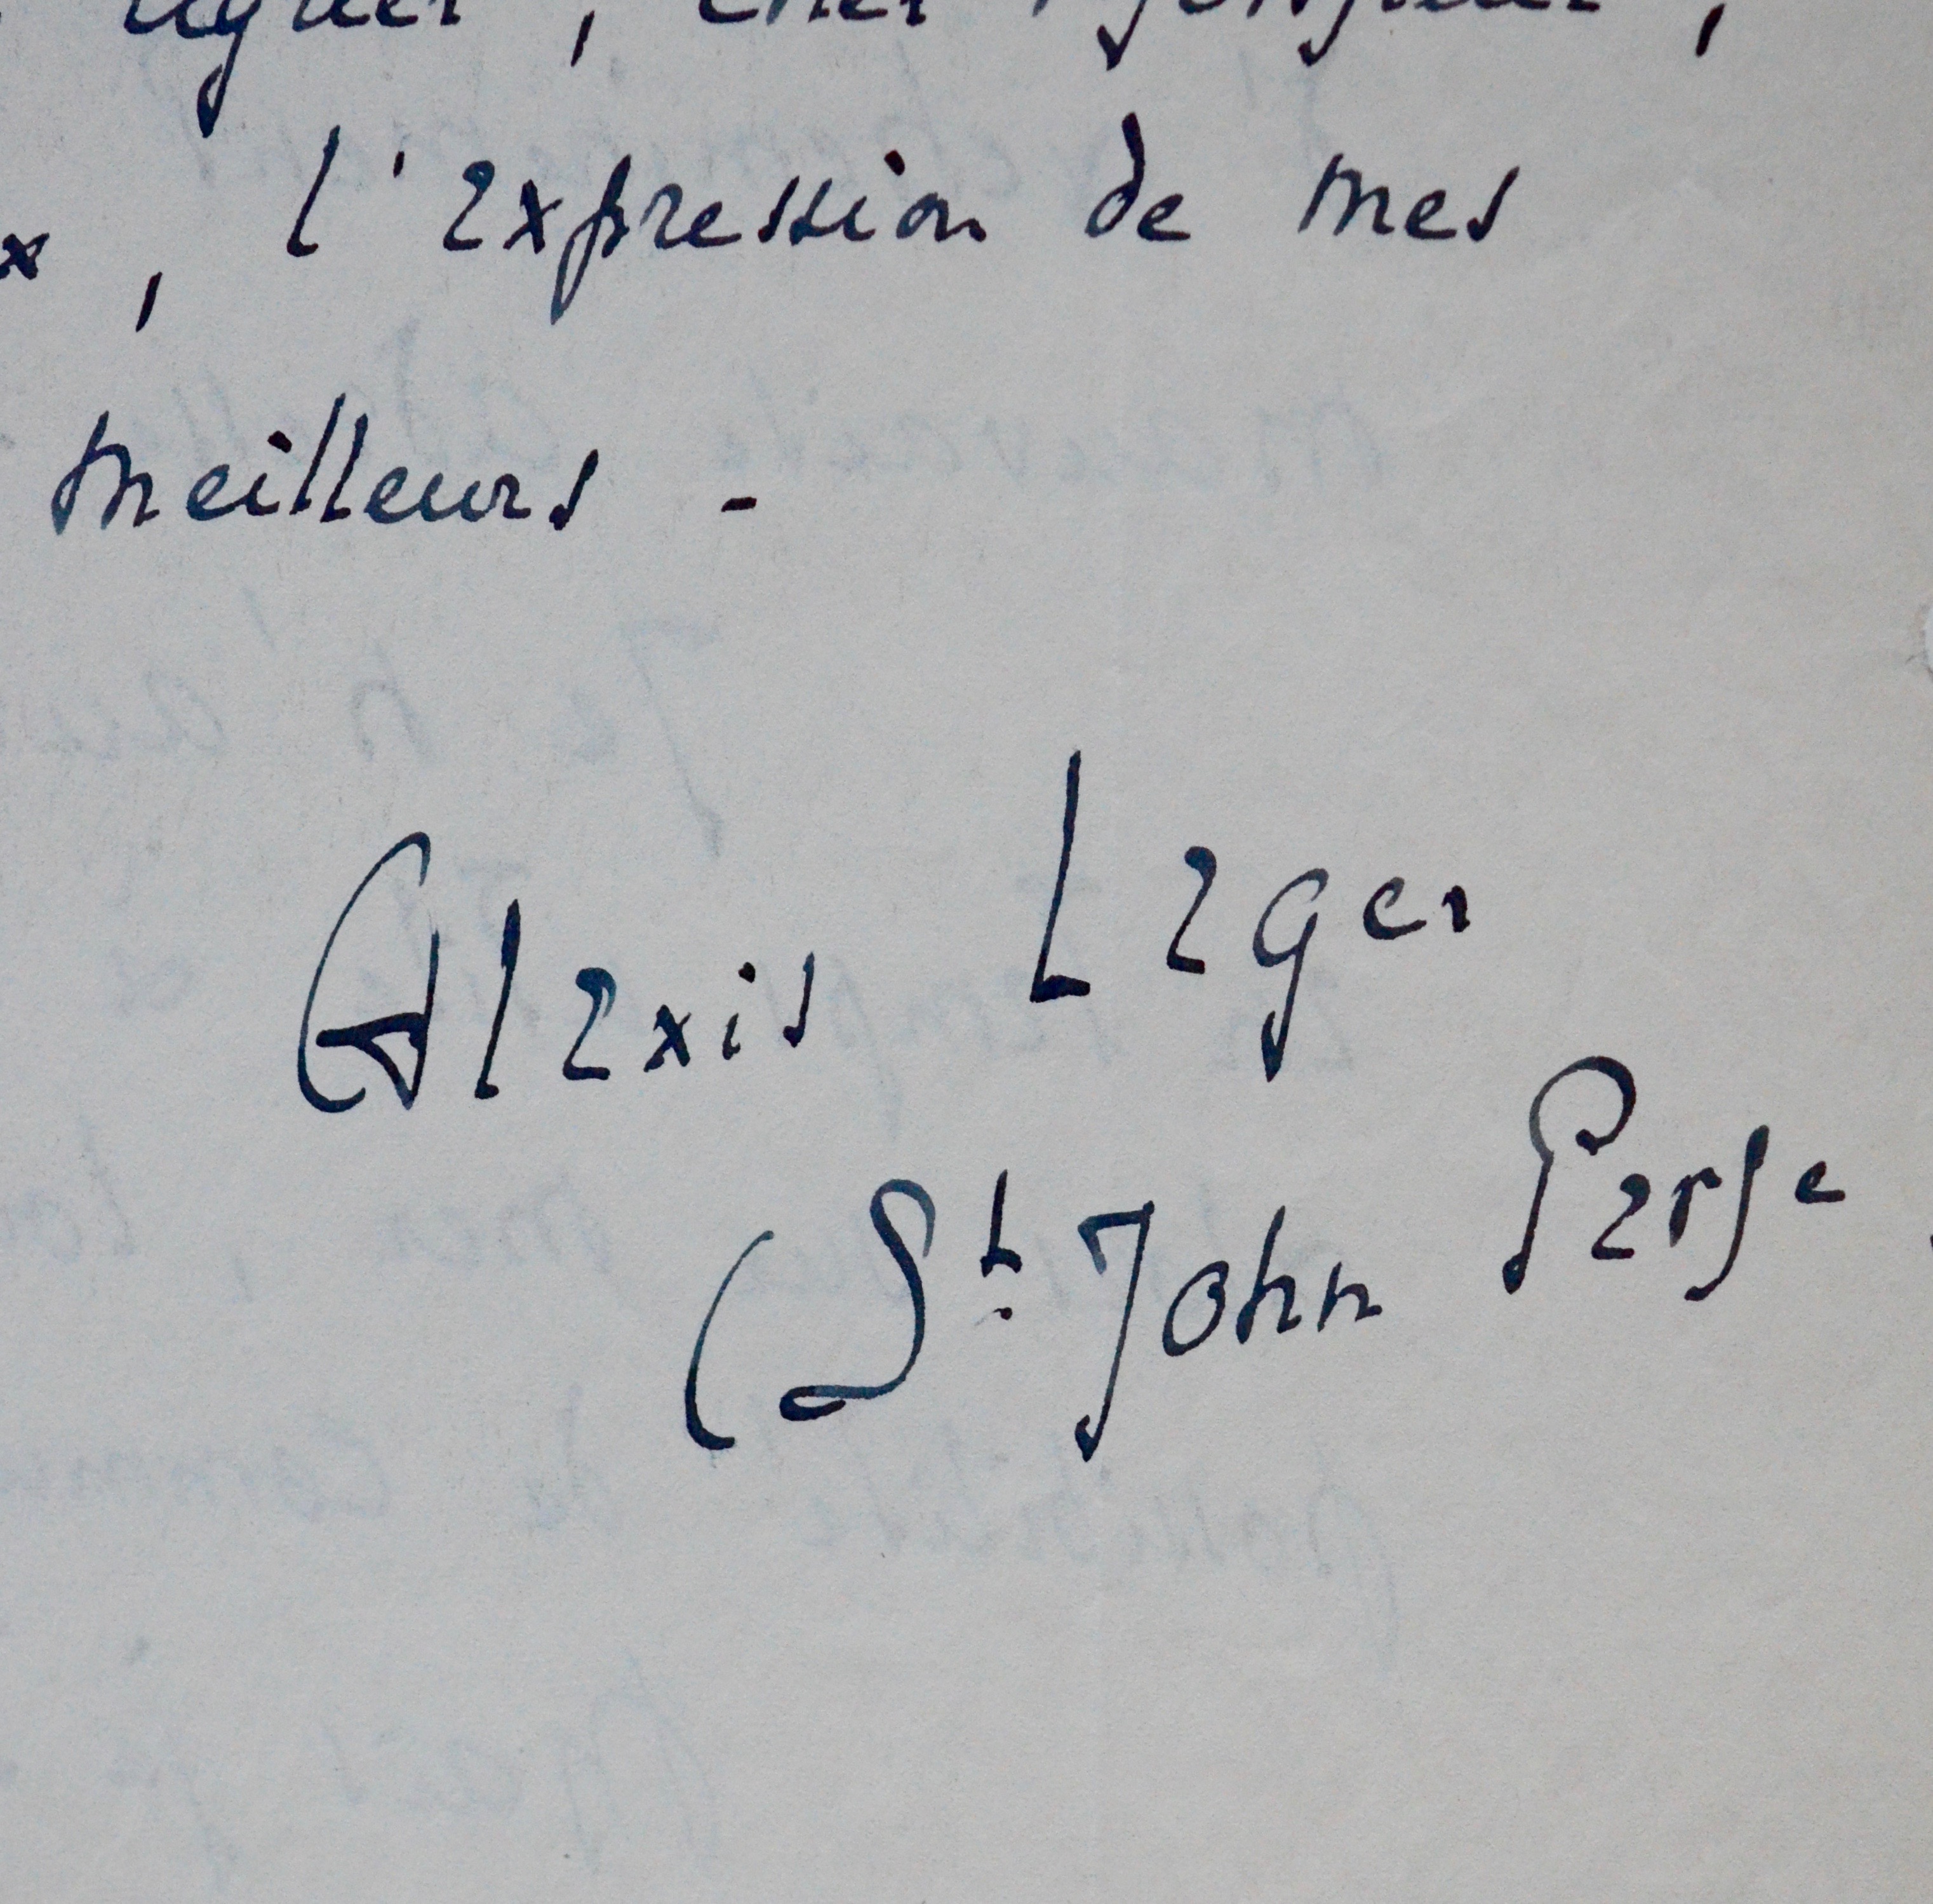 , cher Monsieur,
x, l'expression de mes
meilleurs -
Alexis Leger
(St. John Perse